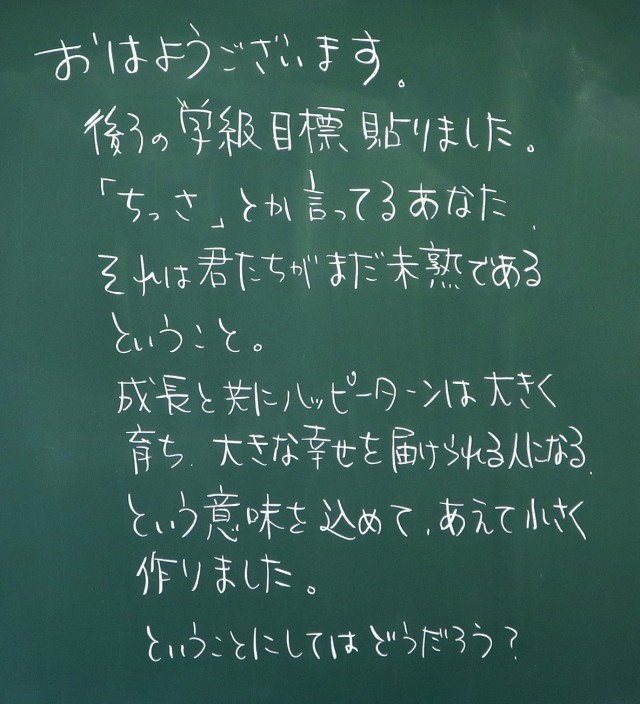 おはようございます。
後ろの学級目標貼りました。
「ちっさ」とか言ってるあなた、
それは君たちがまだ未熟である
ということ。
成長と共にハッピーターンは大きく
育ち、大きな幸せを届けられる人になる、
という意味を込めて、あえて小さく
作りました。
ということにしてはどうだろう？